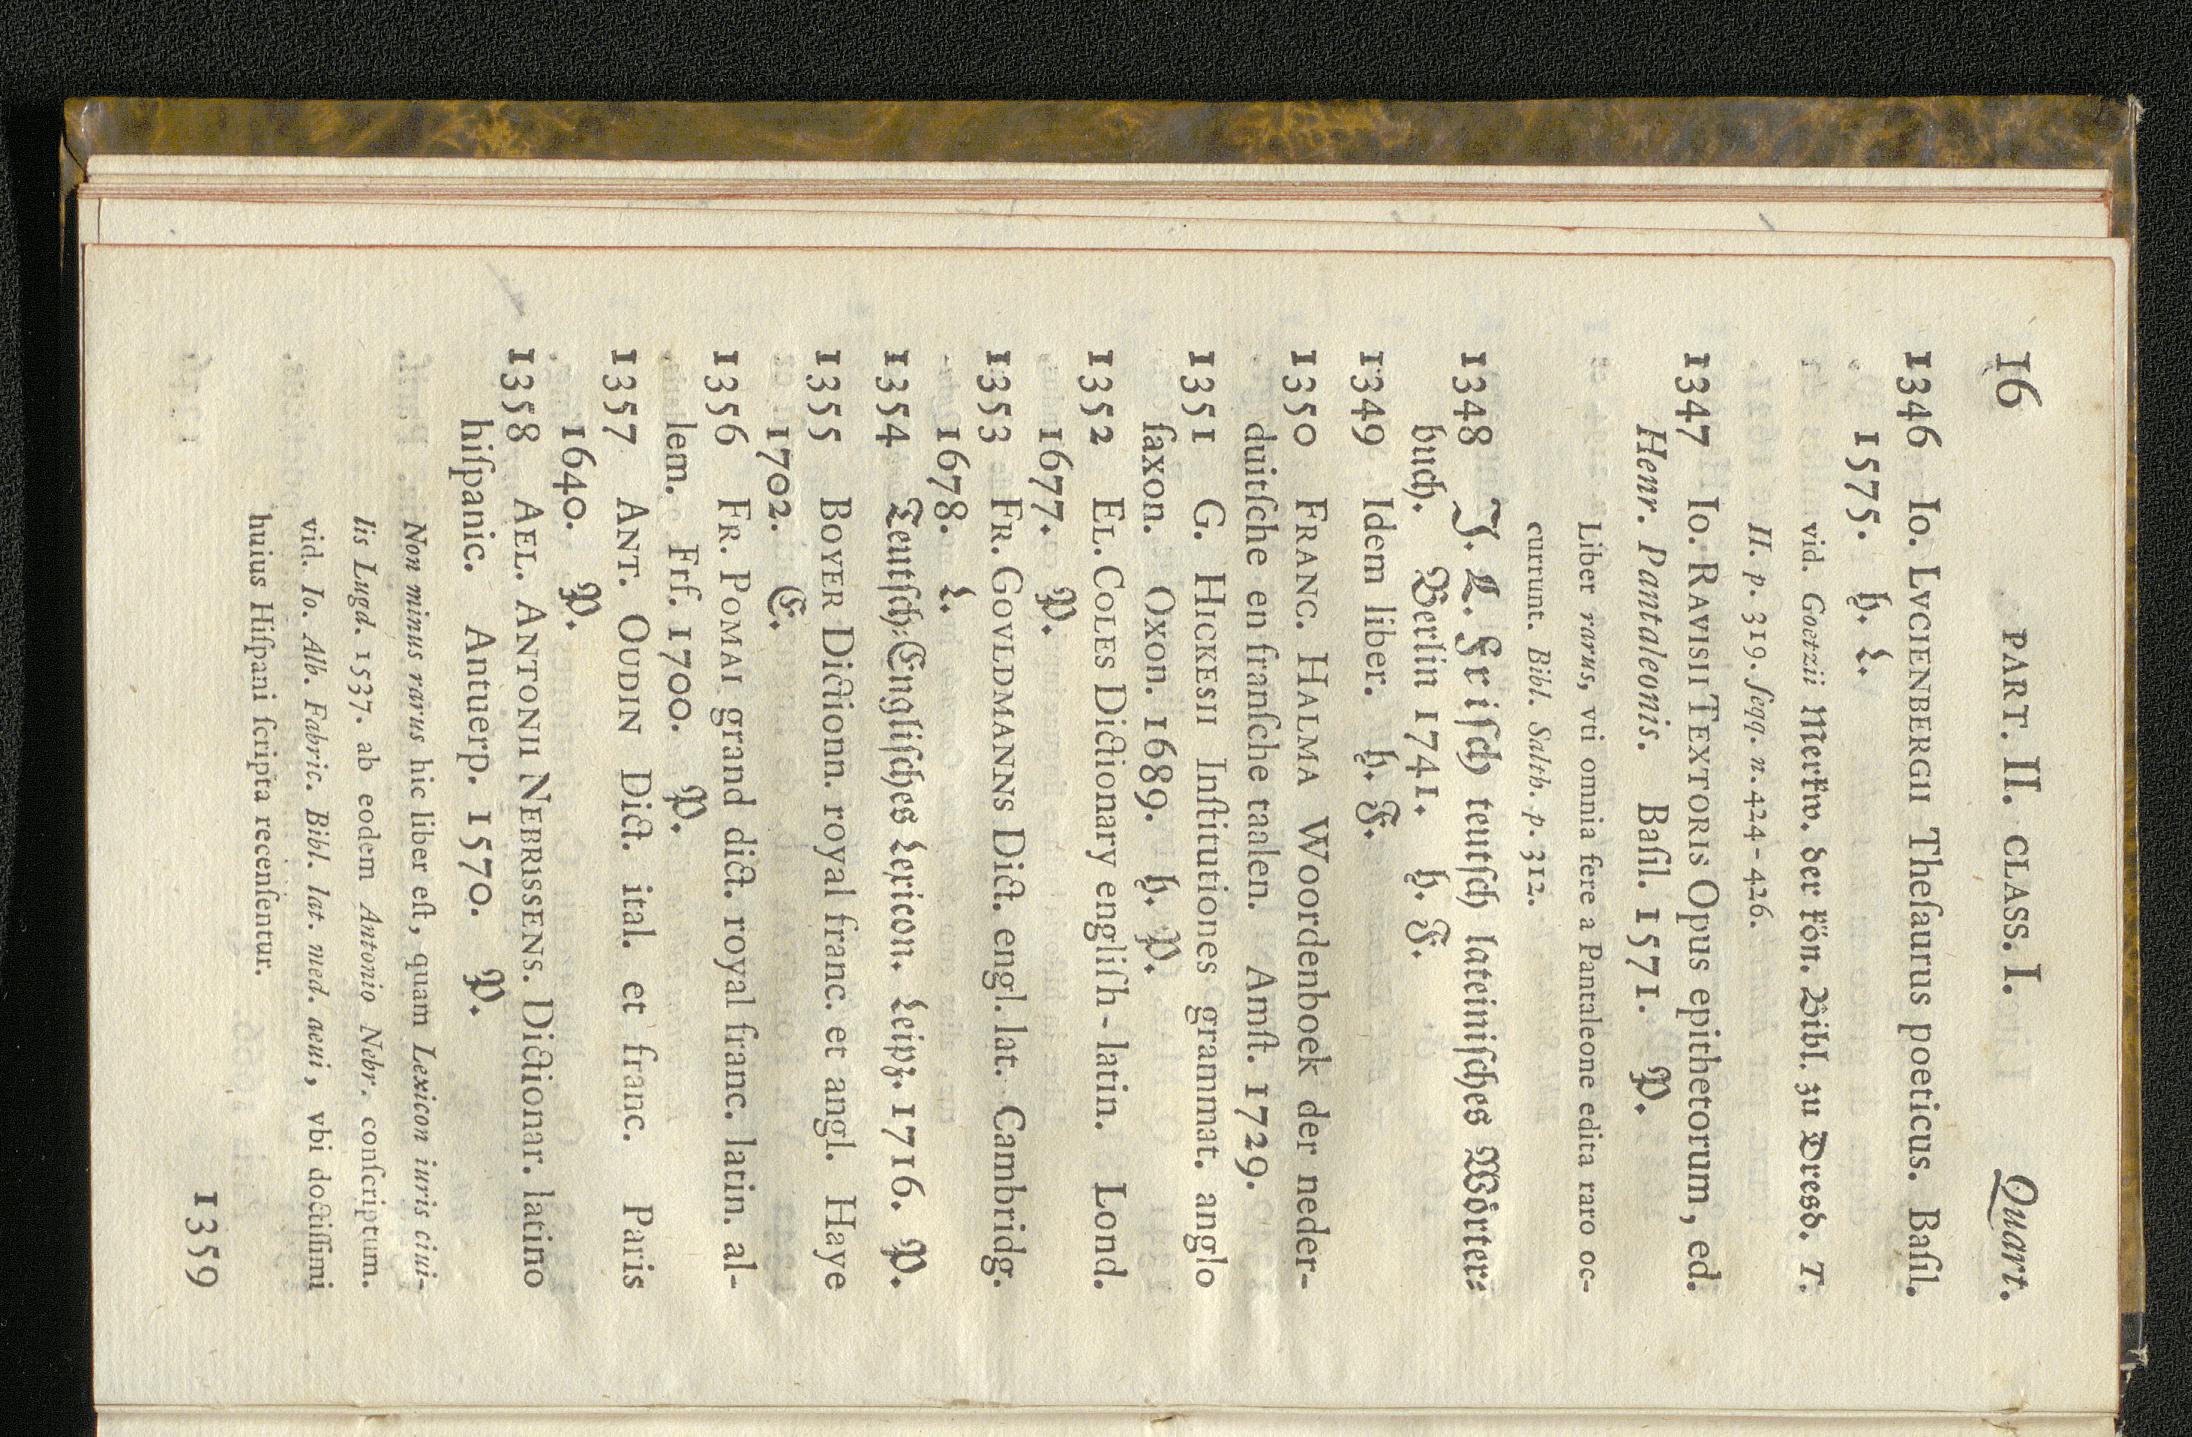 16 PART. II. CLASS. I. Quart.
1346 Io. LVCIENBERGII Theſaurus poeticus. Baſil.
1575. H. L.
vid. Goetzii Merkw. der kön. Bibl. zu Dresd. T.
II. p. 319. ſeqq. n. 424-426.
1347 Io. RAVISII TEXTORIS Opus epithetorum, ed.
Henr. Pantaleonis. Baſil. 1571. P.
Liber rarus, vti omnia fere a Pantaleone edita raro oc-
currunt. Bibl. Salth. p. 312.
1348 J. L. Friſch teutſch lateiniſches Wörter-
buch. Berlin 1741. H. F.
1349 Idem liber. H. F.
1350 FRANC. HALMA Woordenboek der neder-
duitſche en franſche taalen. Amſt. 1729.
1351 G. HICKESII Inſtitutiones grammat. anglo
ſaxon. Oxon. 1689. H. P.
1352 EL. COLES Dictionary engliſh-latin. Lond.
1677. P.
1353 FR. GOVLDMANNS Dict. engl. lat. Cambridg.
1678. L.
1354 Teutſch-Engliſches Lexicon. Leipz. 1716. P.
1355 BOYER Dictionn. royal franc. et angl. Haye
1702. E.
1356 FR. POMAI grand dict. royal franc. latin. al-
lem. Frf. 1700. P.
1357 ANT. OUDIN Dict. ital. et franc. Paris
1640. P.
1358 AEL. ANTONII NEBRISSENS. Dictionar. latino
hiſpanic. Antuerp. 1570. P.
Non minus rarus hic liber eſt, quam Lexicon iuris ciui-
lis Lugd. 1537. ab eodem Antonio Nebr. conſcriptum.
vid. Io. Alb. Fabric. Bibl. lat. med. aeui, vbi doctiſſimi
huius Hiſpani ſcripta recenſentur.
1359